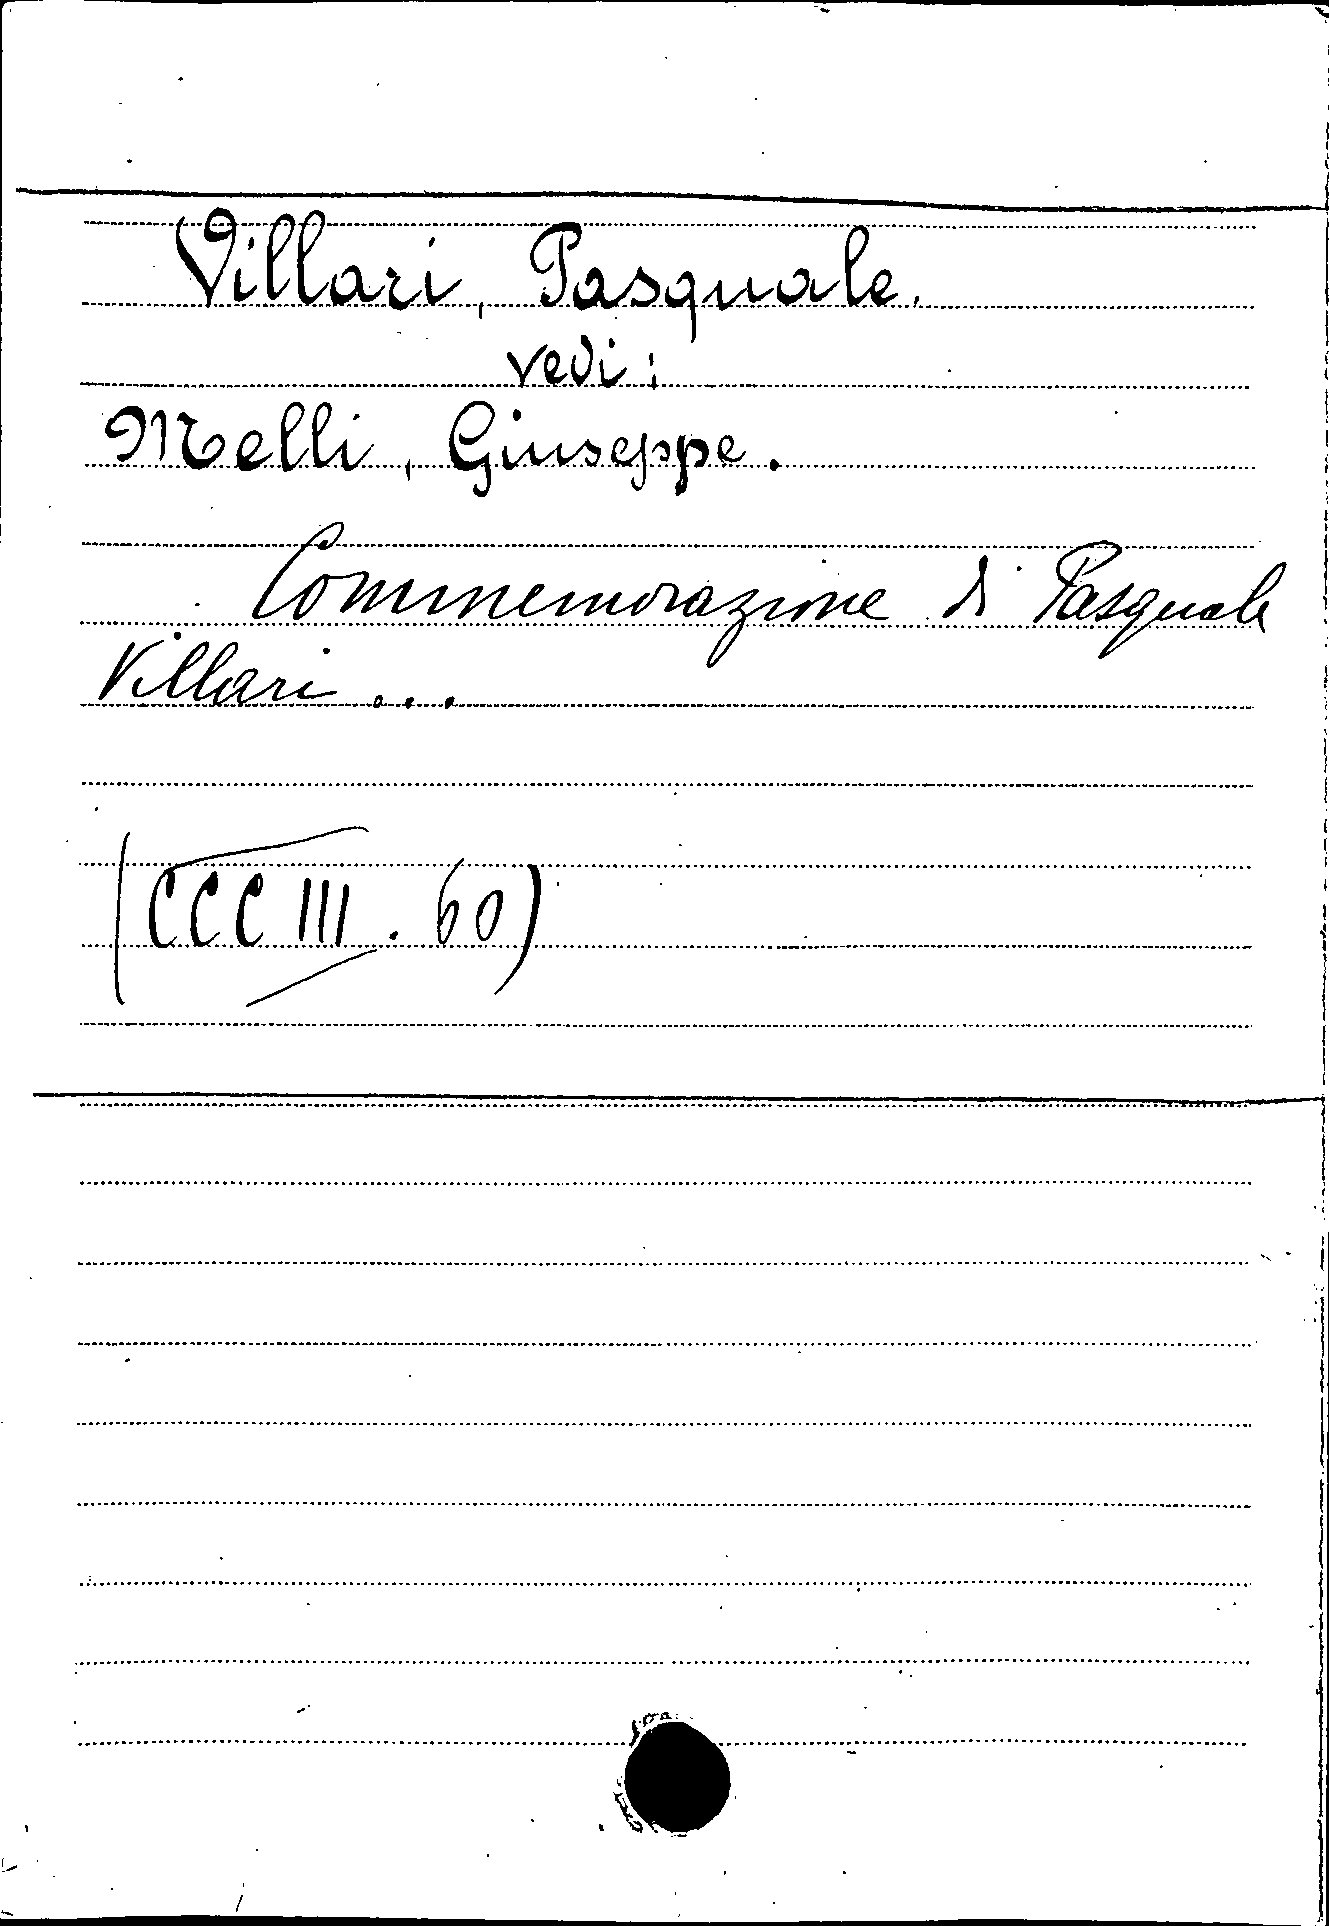 Villari, Pasquale.
vedi:
Melli, Giuseppe.
Commemorazione di Pasquale
Villari...
(CCCIII. 60)